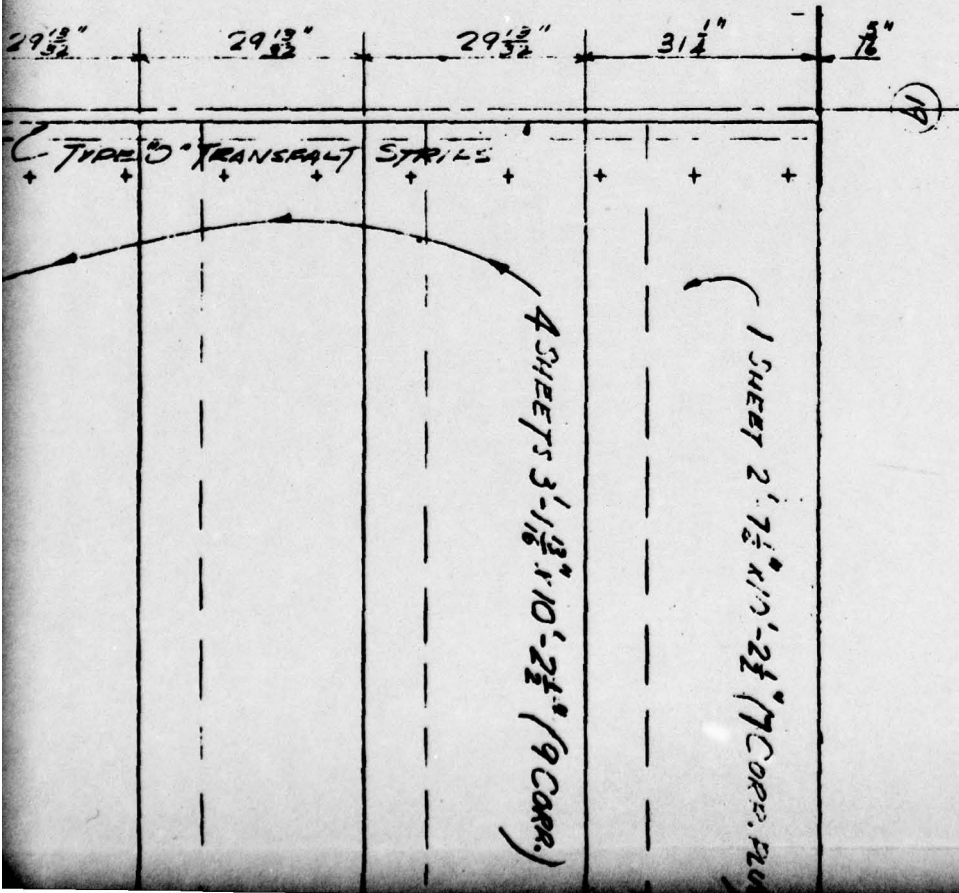 29 13/32" 29 13/32" 29 13/32" 31 1/4" 5/16"
19
TYPE "D" TRANSPALT STRILS
4 SHEETS 3'-1 13/16" x 10'-2 1/2" (9 CORR.)
1 SHEET 2'-7 1/2" x 10'-2 1/2" (7 CORR. PLU